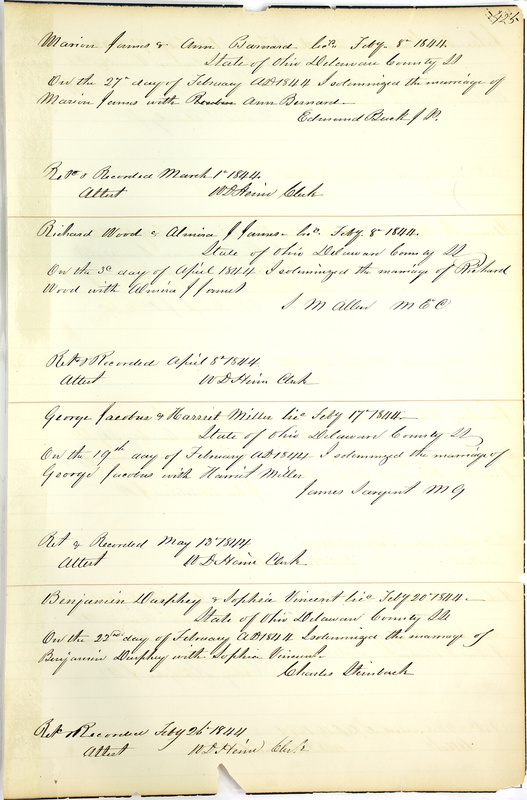 425
Marion James & Ann Barnard Lic. Feby. 8th 1844.
State of Ohio Delaware County SS
On the 27th day of February AD 1844 I solemnized the marriage of
Marion James with Ann Bernard
Edmund Buck J P.
Retd & Recorded March 1st 1844.
Attest W D Heim Clerk
Richard Wood & Almira J James Lic. Feby. 8th 1844.
State of Ohio Delaware County SS
On the 3d day of April 1844 I solemnized the marriage of Richard
Wood with Almira J James
S M Allen M E C
Retd & Recorded April 8th 1844.
Attest W D Heim Clerk
George Jacobus & Harriet Miller Lic Feby 17th 1844
State of Ohio Delaware County SS
On the 19th day of February AD 1844 I solemnized the marriage of
George Jacobus with Harriet Miller
James Sargent M G
Ret & Recorded May 13th 1844
Attest W D Heim Clerk
Benjamin & Sophia Vincent Lic Feby 20th 1844
State of Ohio Delaware County SS
On the 22nd day of February AD 1844 I solemnized the marriage of
Benjamin with Sophia Vincent
Charles Steinback
Retd & Recorded Feby 26th 1844
Attest W D Heim Clerk